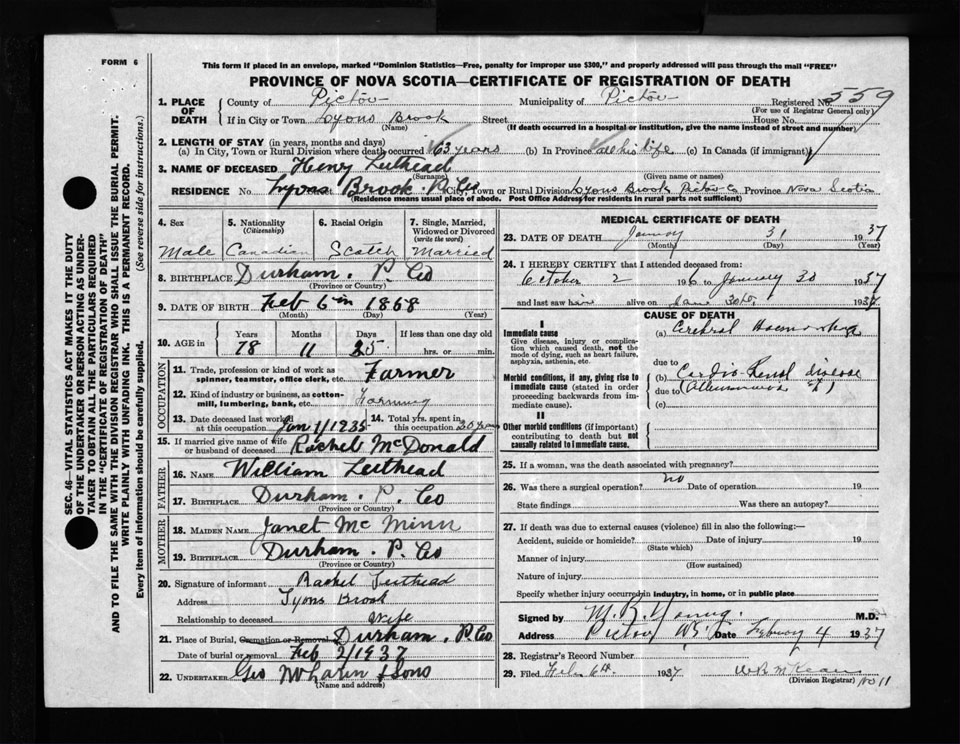 FORM 6
This form if placed in an envelope, marked "Dominion Statistics—Free, penalty for improper use $300," and properly addressed will pass through the mail "FREE"
PROVINCE OF NOVA SCOTIA—CERTIFICATE OF REGISTRATION OF DEATH
1. PLACE OF DEATH
County of Pictou Municipality of Pictou Registered No. 559
(For use of Registrar General only)
If in City or Town Lyons Brook Street House No.
(Name) (If death occurred in a hospital or institution, give the name instead of street and number)
2. LENGTH OF STAY (in years, months and days)
(a) In City, Town or Rural Division where death occurred 63 years (b) In Province all his life (c) In Canada (if immigrant)
3. NAME OF DECEASED Henry Leithead
(Surname) (Given name or names)
RESIDENCE No. Lyons Brook P. Co City, Town or Rural Division Lyons Brook Pictou Co Province Nova Scotia
(Residence means usual place of abode. Post Office Address for residents in rural parts not sufficient)
4. Sex 5. Nationality 6. Racial Origin 7. Single, Married, Widowed or Divorced
(Citizenship) (write the word)
Male Canadian Scotch Married
8. BIRTHPLACE Durham . P. Co
(Province or Country)
9. DATE OF BIRTH Feb 6th 1868
(Month) (Day) (Year)
10. AGE in Years Months Days If less than one day old
78 11 25 hrs. or min.
OCCUPATION
11. Trade, profession or kind of work as spinner, teamster, office clerk, etc. Farmer
12. Kind of industry or business, as cotton-mill, lumbering, bank, etc. Farming
13. Date deceased last worked at this occupation Jan 1/1935 14. Total yrs. spent in this occupation
15. If married give name of wife or husband of deceased Rachel McDonald
FATHER
16. NAME William Leithead
17. BIRTHPLACE Durham . P. Co
(Province or Country)
MOTHER
18. MAIDEN NAME Janet McMinn
19. BIRTHPLACE Durham . P. Co
(Province or Country)
20. Signature of informant Rachel Leithead
Address Lyons Brook
Relationship to deceased Wife
21. Place of Burial, Cremation or Removal Durham . P. Co
Date of burial or removal Feb 2/1937
22. UNDERTAKER Geo McLaren & Sons
(Name and address)
MEDICAL CERTIFICATE OF DEATH
23. DATE OF DEATH January 31 1937
(Month) (Day) (Year)
24. I HEREBY CERTIFY that I attended deceased from:
October 2 1936 to January 30 1937
and last saw him alive on Jan 30th 1937
CAUSE OF DEATH
I
Immediate cause
Give disease, injury or complication which caused death, not the mode of dying, such as heart failure, asphyxia, asthenia, etc.
(a) Cerebral Haemorrhage
due to
Morbid conditions, if any, giving rise to immediate cause (stated in order proceeding backwards from immediate cause).
(b) Cardio-Renal disease
due to
(c)
II
Other morbid conditions (if important) contributing to death but not causally related to immediate cause.
25. If a woman, was the death associated with pregnancy?
26. Was there a surgical operation? no Date of operation 19
State findings Was there an autopsy?
27. If death was due to external causes (violence) fill in also the following:—
Accident, suicide or homicide? Date of injury 19
(State which)
Manner of injury
(How sustained)
Nature of injury
Specify whether injury occurred in industry, in home, or in public place
Signed by M. R. Young. M.D.
Address Pictou N.S. Date February 4 1937
28. Registrar's Record Number
29. Filed Feb 6th 1937
(Division Registrar) No 11
SEC. 46—VITAL STATISTICS ACT MAKES IT THE DUTY
OF THE UNDERTAKER OR PERSON ACTING AS UNDER-
TAKER TO OBTAIN ALL THE PARTICULARS REQUIRED
IN THE "CERTIFICATE OF REGISTRATION OF DEATH"
AND TO FILE THE SAME WITH THE DIVISION REGISTRAR WHO SHALL ISSUE THE BURIAL PERMIT.
WRITE PLAINLY WITH UNFADING INK. THIS IS A PERMANENT RECORD.
Every item of information should be carefully supplied. (See reverse side for instructions.)